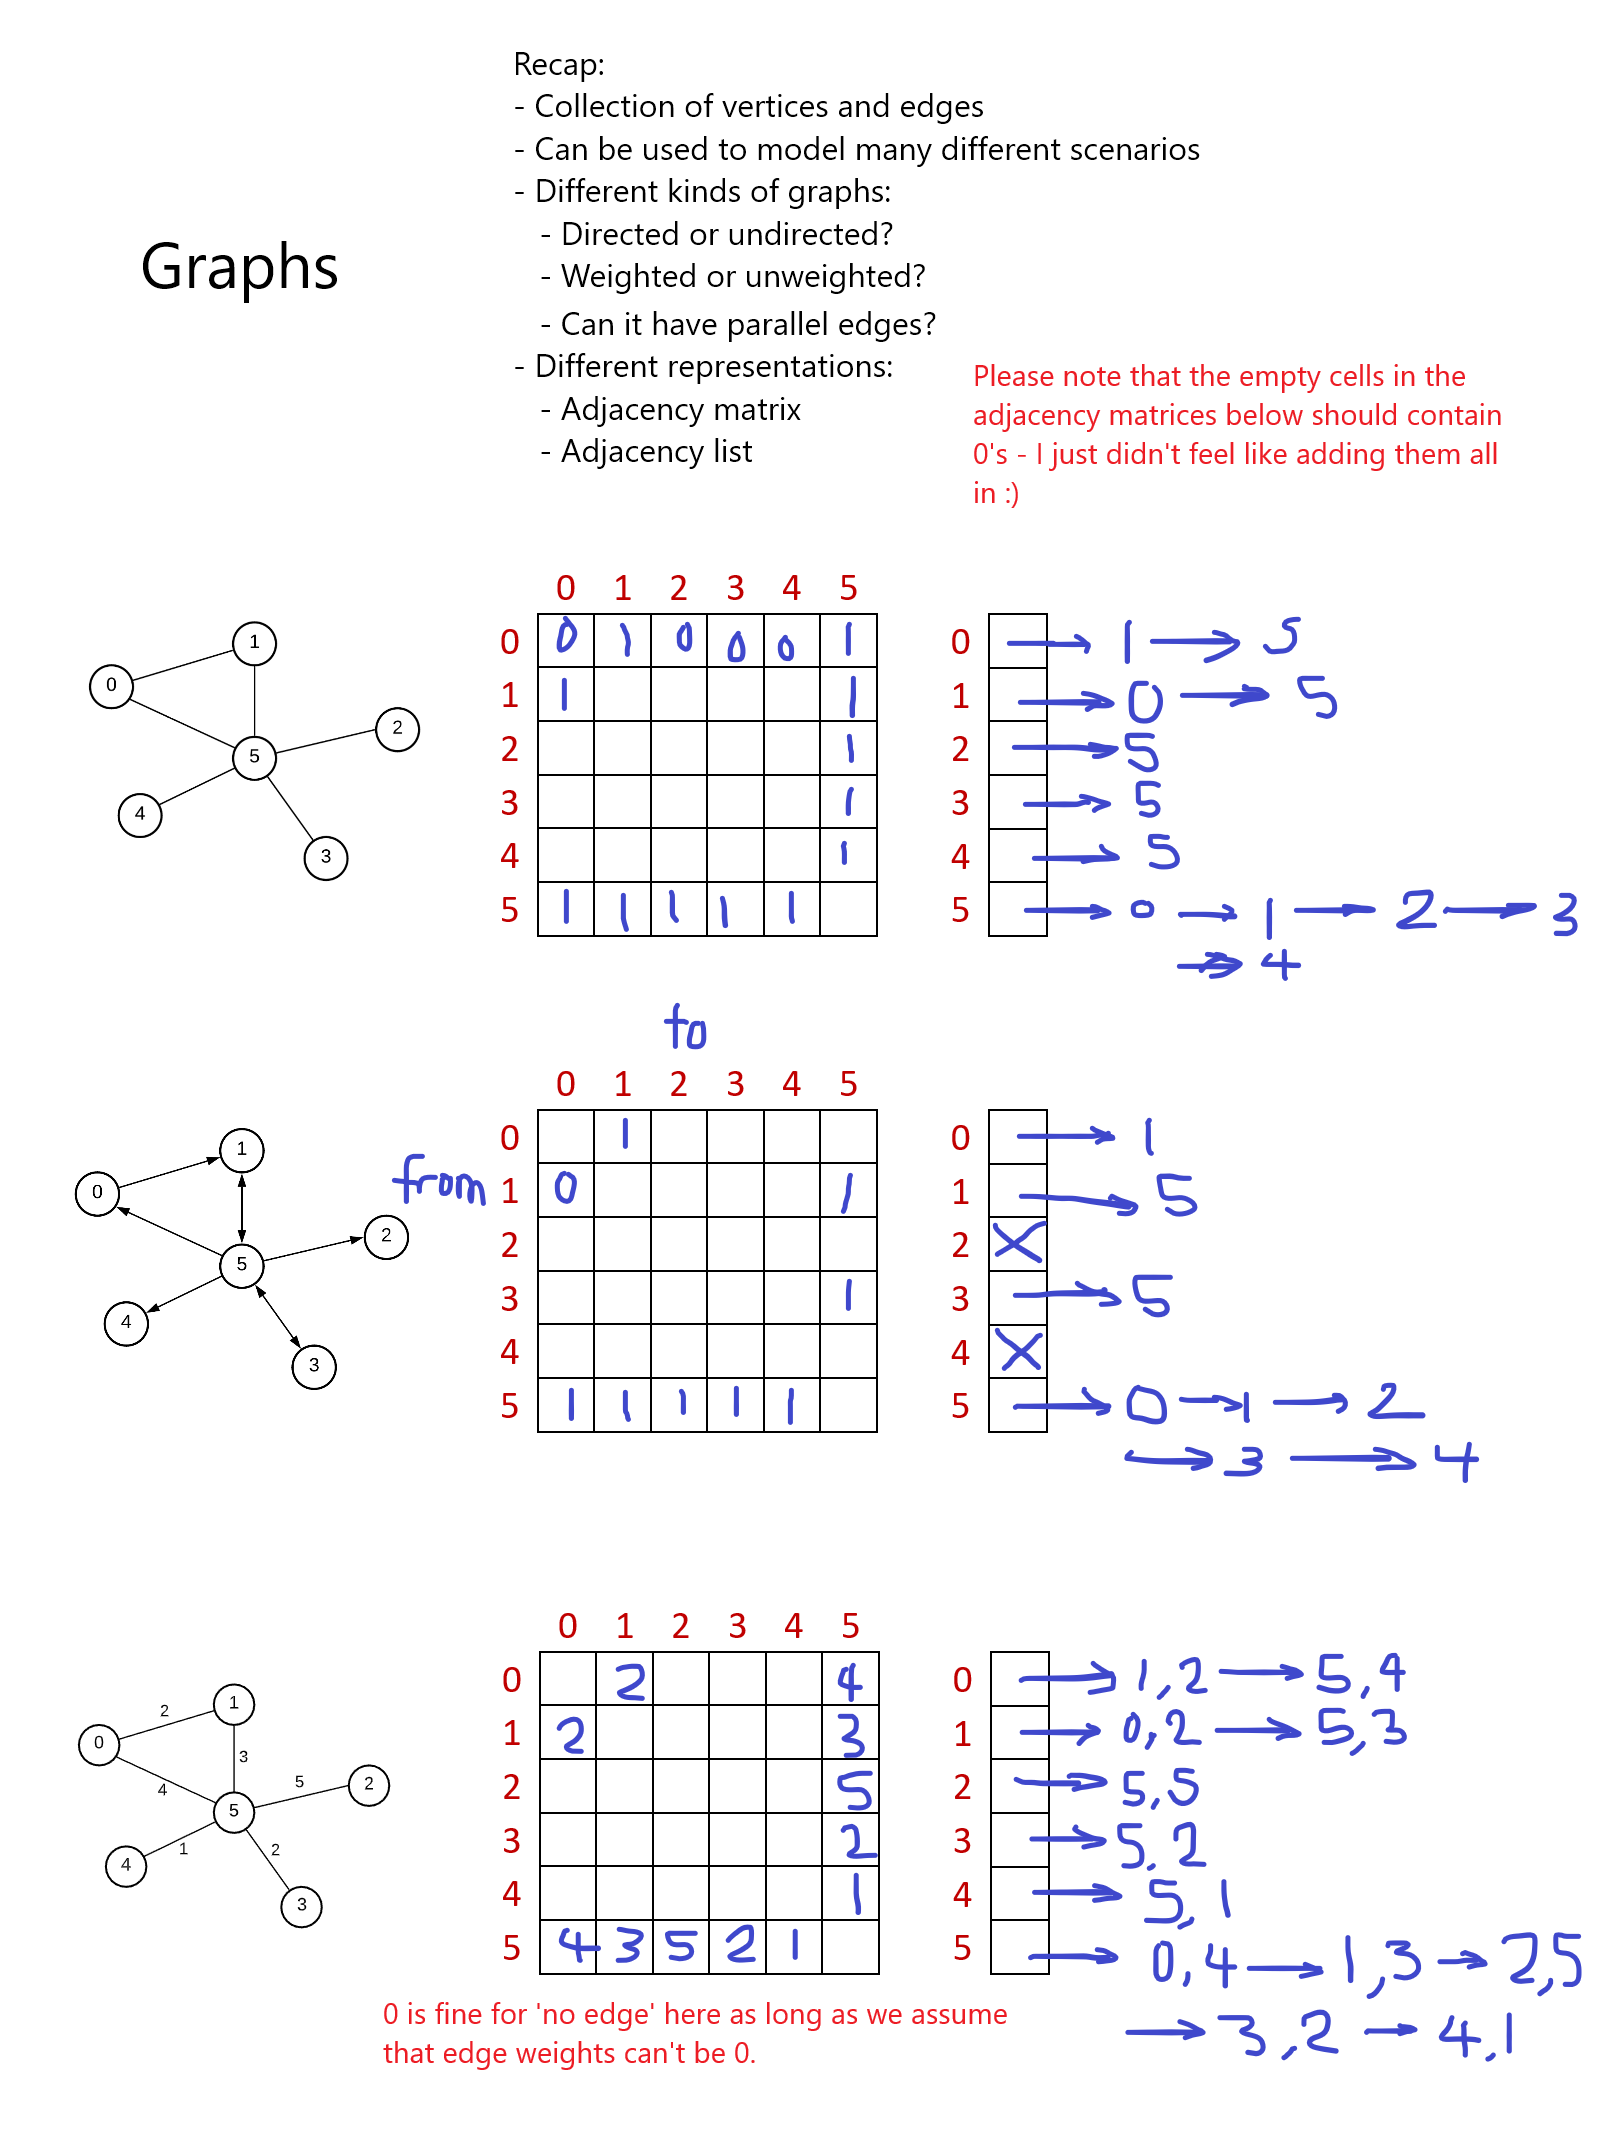 Recap:
- Collection of vertices and edges
- Can be used to model many different scenarios
- Different kinds of graphs:
- Directed or undirected?
- Weighted or unweighted?
- Can it have parallel edges?
- Different representations:
- Adjacency matrix
- Adjacency list
Graphs
Please note that the empty cells in the
adjacency matrices below should contain
0's - I just didn't feel like adding them all
in :)
1
0
2
5
4
3
0 1 2 3 4 5
0 0 1 0 0 0 1
1 1 1
2 1
3 1
4 1
5 1 1 1 1 1
0 → 1 → 5
1 → 0 → 5
2 → 5
3 → 5
4 → 5
5 → 0 → 1 → 2 → 3
→ 4
to
from
1
0
2
5
4
3
0 1 2 3 4 5
0 1
1 0 1
2
3 1
4
5 1 1 1 1 1
0 → 1
1 → 5
2 X
3 → 5
4 X
5 → 0 → 1 → 2
→ 3 → 4
1
2
0
3
5
2
4
5
1
2
4
3
0 1 2 3 4 5
0 2 4
1 2 3
2 5
3 2
4 1
5 4 3 5 2 1
0 → 1,2 → 5,4
1 → 0,2 → 5,3
2 → 5,5
3 → 5,2
4 → 5,1
5 → 0,4 → 1,3 → 2,5
→ 3,2 → 4,1
0 is fine for 'no edge' here as long as we assume
that edge weights can't be 0.